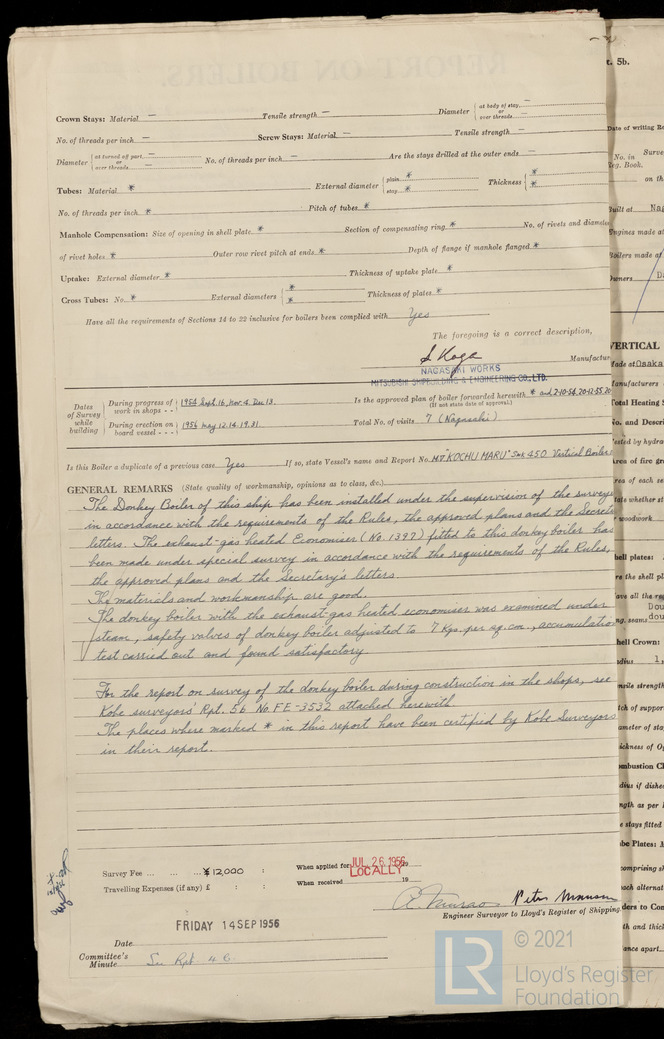 Crown Stays: Material — Tensile strength — Diameter at body of stay, — or over threads —
No. of threads per inch — Screw Stays: Material — Tensile strength —
Diameter at turned off part, — or over threads — No. of threads per inch — Are the stays drilled at the outer ends —
Tubes: Material * External diameter plain * stay * Thickness * *
No. of threads per inch * Pitch of tubes *
Manhole Compensation: Size of opening in shell plate * Section of compensating ring * No. of rivets and diameter
of rivet holes * Outer row rivet pitch at ends * Depth of flange if manhole flanged *
Uptake: External diameter * Thickness of uptake plate *
Cross Tubes: No. * External diameters * * Thickness of plates *
Have all the requirements of Sections 14 to 22 inclusive for boilers been complied with Yes
The foregoing is a correct description,
Manufactur
NAGASAKI WORKS
MITSUBISHI SHIPBUILDING & ENGINEERING CO., LTD.
Dates of Survey while building
During progress of work in shops - - 1954 Sept. 16, Nov. 4. Dec. 13.
Is the approved plan of boiler forwarded herewith * and 2-10-54, 20-12-55, 20
(If not state date of approval.)
During erection on board vessel - - - 1956 May 12. 14. 19. 31.
Total No. of visits 7 (Nagasaki)
Is this Boiler a duplicate of a previous case Yes If so, state Vessel's name and Report No. M.V. "KOCHU MARU" 450 Vertical Boiler
GENERAL REMARKS (State quality of workmanship, opinions as to class, &c.)
The Donkey Boiler of this ship has been installed under the supervision of the survey
in accordance with the requirements of the Rules, the approved plans and the Secret
letters. The exhaust-gas heated Economiser (No. 1397) fitted to this donkey boiler has
been made under special survey in accordance with the requirements of the Rules,
the approved plans and the Secretary's letters.
The materials and workmanship are good.
The donkey boiler with the exhaust-gas heated economiser was examined under
steam, safety valves of donkey boiler adjusted to 7 Kgs. per sq. cm., accumulatio
test carried out and found satisfactory.
For the report on survey of the donkey boiler during construction in the shops, see
Kobe surveyors' Rpt. 5b No. FE-3532 attached herewith
The places where marked * in this report have been certified by Kobe Surveyors
in their report.
Survey Fee ... ... ... ¥12,000 : :
When applied for JUL. 26. 1956 19
LOCALLY
Travelling Expenses (if any) £ : :
When received 19
Engineer Surveyor to Lloyd's Register of Shipping.
FRIDAY 14 SEP 1956
Date
Committee's Minute See Rpt 4 B.
© 2021
LR
Lloyd's Register
Foundation
t. 5b.
Date of writing Re
No. in Surve
Reg. Book.
on th
Built at Nag
Engines made at
Boilers made at
Owners
VERTICAL
Made at Osaka
Manufacturers
Total Heating S
No. and Descri
Tested by hydra
Area of fire gr
rea of each se
tate whether st
woodwork
hell plates:
re the shell pl
ave all the req
Dou
ng. seams dou
hell Crown:
adius 1,
nsile strength
tch of support
ameter of stay
ickness of Og
ombustion Ch
dius if dished
ngth as per R
e stays fitted
be Plates: M
omprising sh
ach alternat
ders to Com
th and thick
ance apart